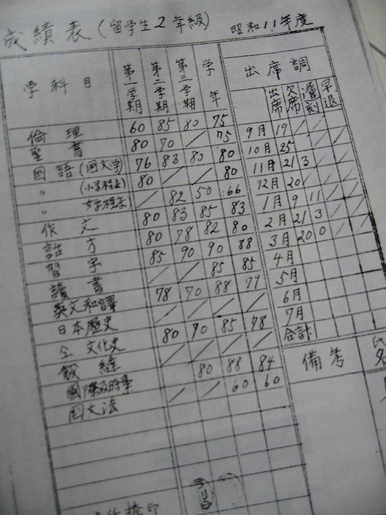 成績表(留学生2年級) 昭和11年度
学科目 第一学期 第二学期 第三学期 学年 出席調
出席 欠席 遅刻 早退
倫理 60 85 80 75
聖書 80 70 / 75
国語(国文学) 76 83 80 80
〃(小学程度) 80 / / 80
〃 女学程度 / 82 50 66
作文 80 83 85 83
話方 80 78 82 80
習字 85 90 90 88
読書 / / 85 85
英文和譯 78 70 88 79
日本歴史 / / / /
仝 文化史 80 70 85 78
裁縫 / / / /
国際及時事 / 80 88 84
国文法 / / 60 60
9月 19 /
10月 25
11月 21 3
12月 20
1月 9 11
2月 21 3
3月 20 0
4月
5月
6月
7月
合計
備考